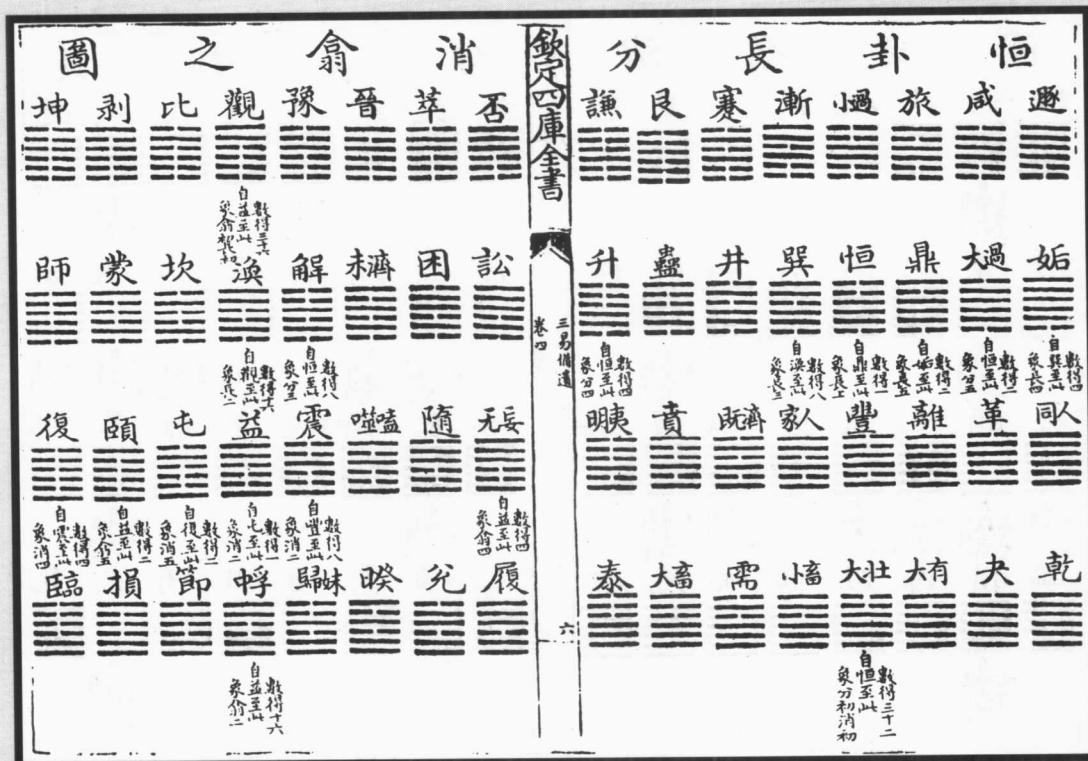 恒卦長分
遯 咸 旅 小過 漸 蹇 艮 謙
姤 大過 鼎 恒 巽 井 蠱 升
數得四
自巽至此
象長四
數得二
自恒至此
象分五
數得二
自姤至此
象長五
數得一
自鼎至此
象長上
數得八
自渙至此
象長三
數得四
自恒至此
象分四
同人 革 離 豐 家人 既濟 賁 明夷
乾 夬 大有 大壯 小畜 需 大畜 泰
數得三十二
自恒至此
象分初消初
欽定四庫全書
三易備遺
卷四
六
消翕之圖
否 萃 晉 豫 觀 比 剥 坤
數得三十六
自益至此
象翕初
訟 困 未濟 解 渙 坎 蒙 師
數得八
自恒至此
象分三
數得十六
自觀至此
象長二
无妄 隨 噬嗑 震 益 屯 頤 復
數得四
自益至此
象翕四
數得八
自豐至此
象消二
數得一
自屯至此
象消二
數得二
自復至此
象消五
數得二
自益至此
象翕五
數得四
自震至此
象消四
履 兌 睽 歸妹 中孚 節 損 臨
數得十六
自益至此
象翕二